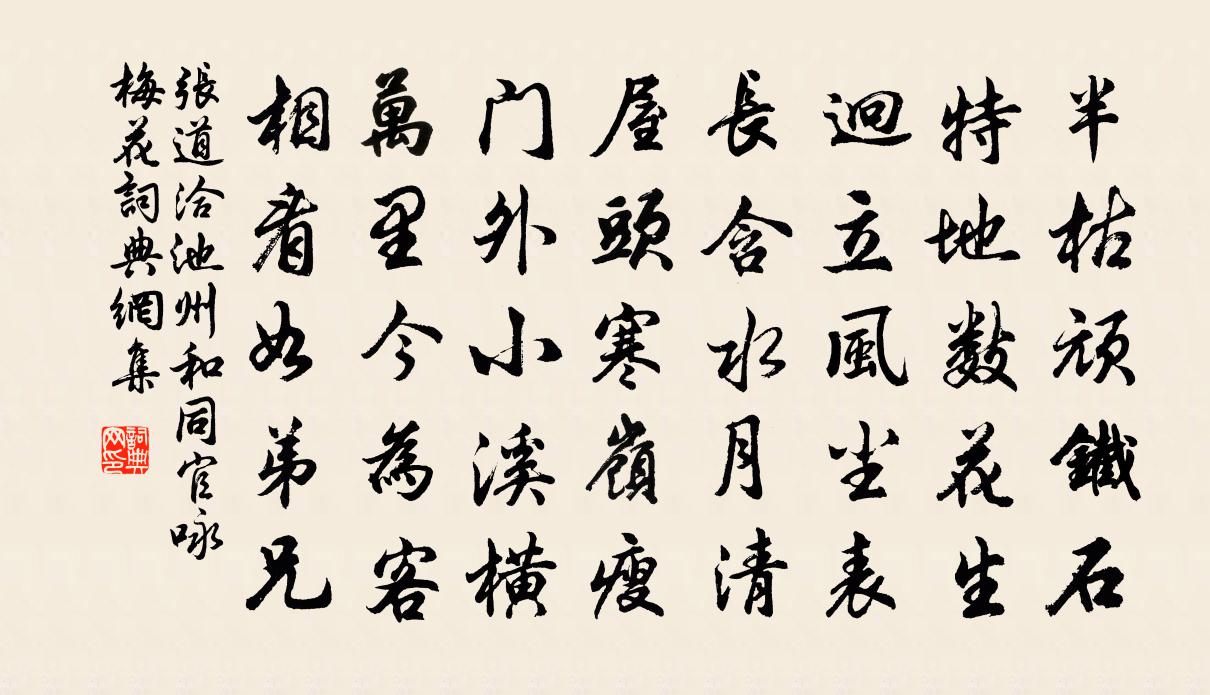 半枯頑鐵石
特地數花生
迥立風尘表
長含水月清
屋頭寒嶺瘦
门外小溪橫
萬里今為客
相看如弟兄
張道洽池州和同官咏
梅花詞典網集
詞典网印